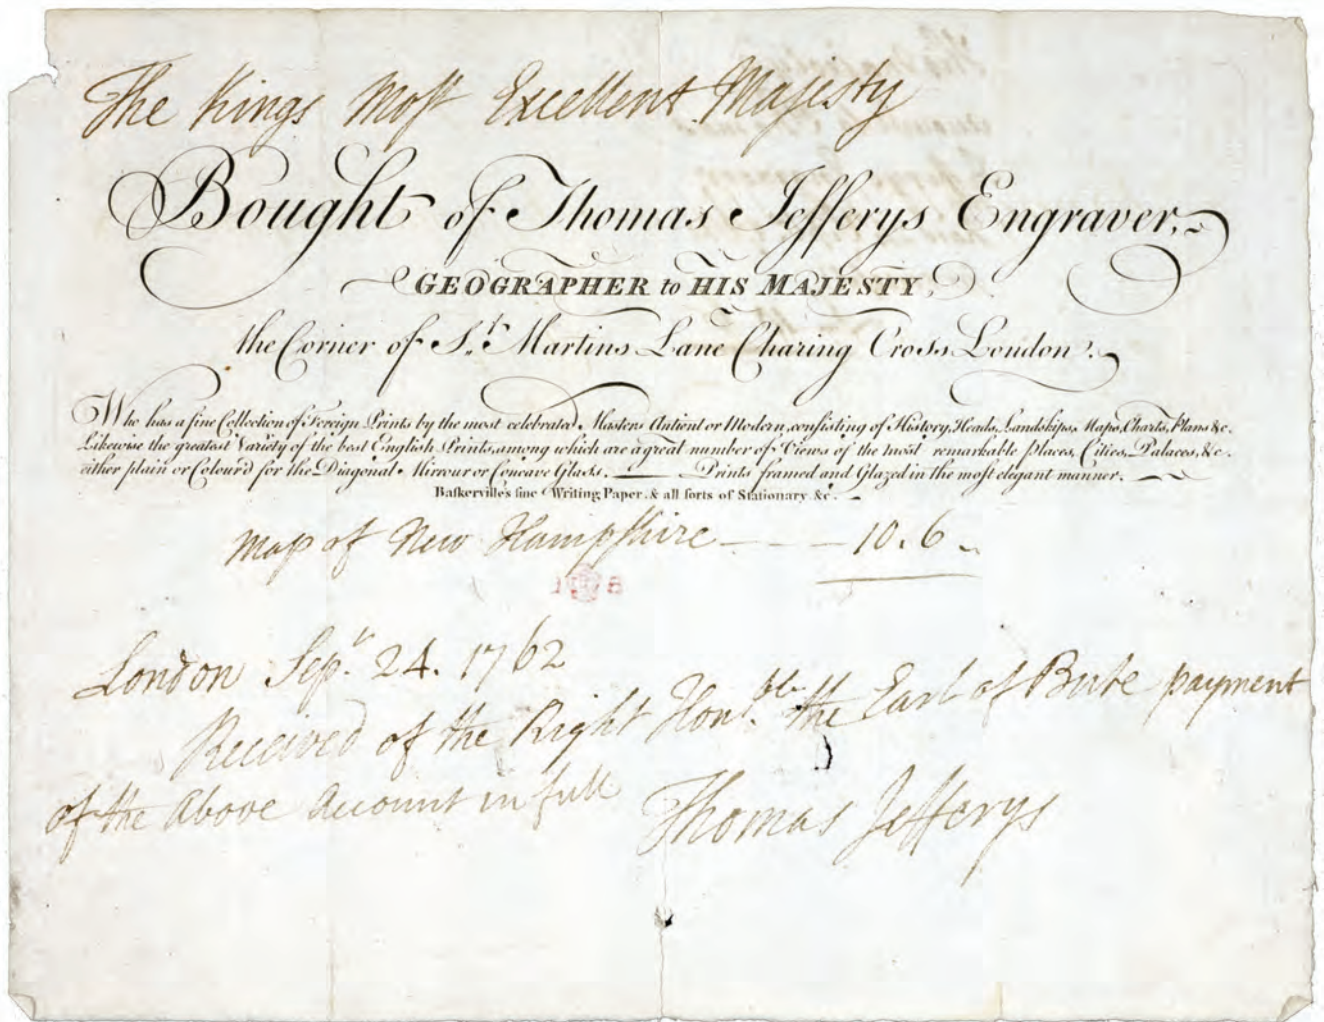 The Kings Most Excellent Majesty
Bought of Thomas Jefferys Engraver,
GEOGRAPHER to HIS MAJESTY,
the Corner of St. Martins Lane Charing Cross London.
Who has a fine Collection of Foreign Prints by the most celebrated Masters Antient or Modern, consisting of History, Heads, Landskips, Maps, Charts, Plans &c.
Likewise the greatest Variety of the best English Prints, among which are a great number of Views of the most remarkable places, Cities, Palaces, &c.
either plain or Colour'd for the Diagonal Mirrour or Concave Glass. Prints framed and Glazed in the most elegant manner.
Baskerville's fine Writing Paper. & all sorts of Stationary. &c.
map of New Hampshire — — — 10. 6
London Sepr. 24. 1762
Received of the Right Honble. the Earl of Bute payment
of the Above Account in full
Thomas Jefferys